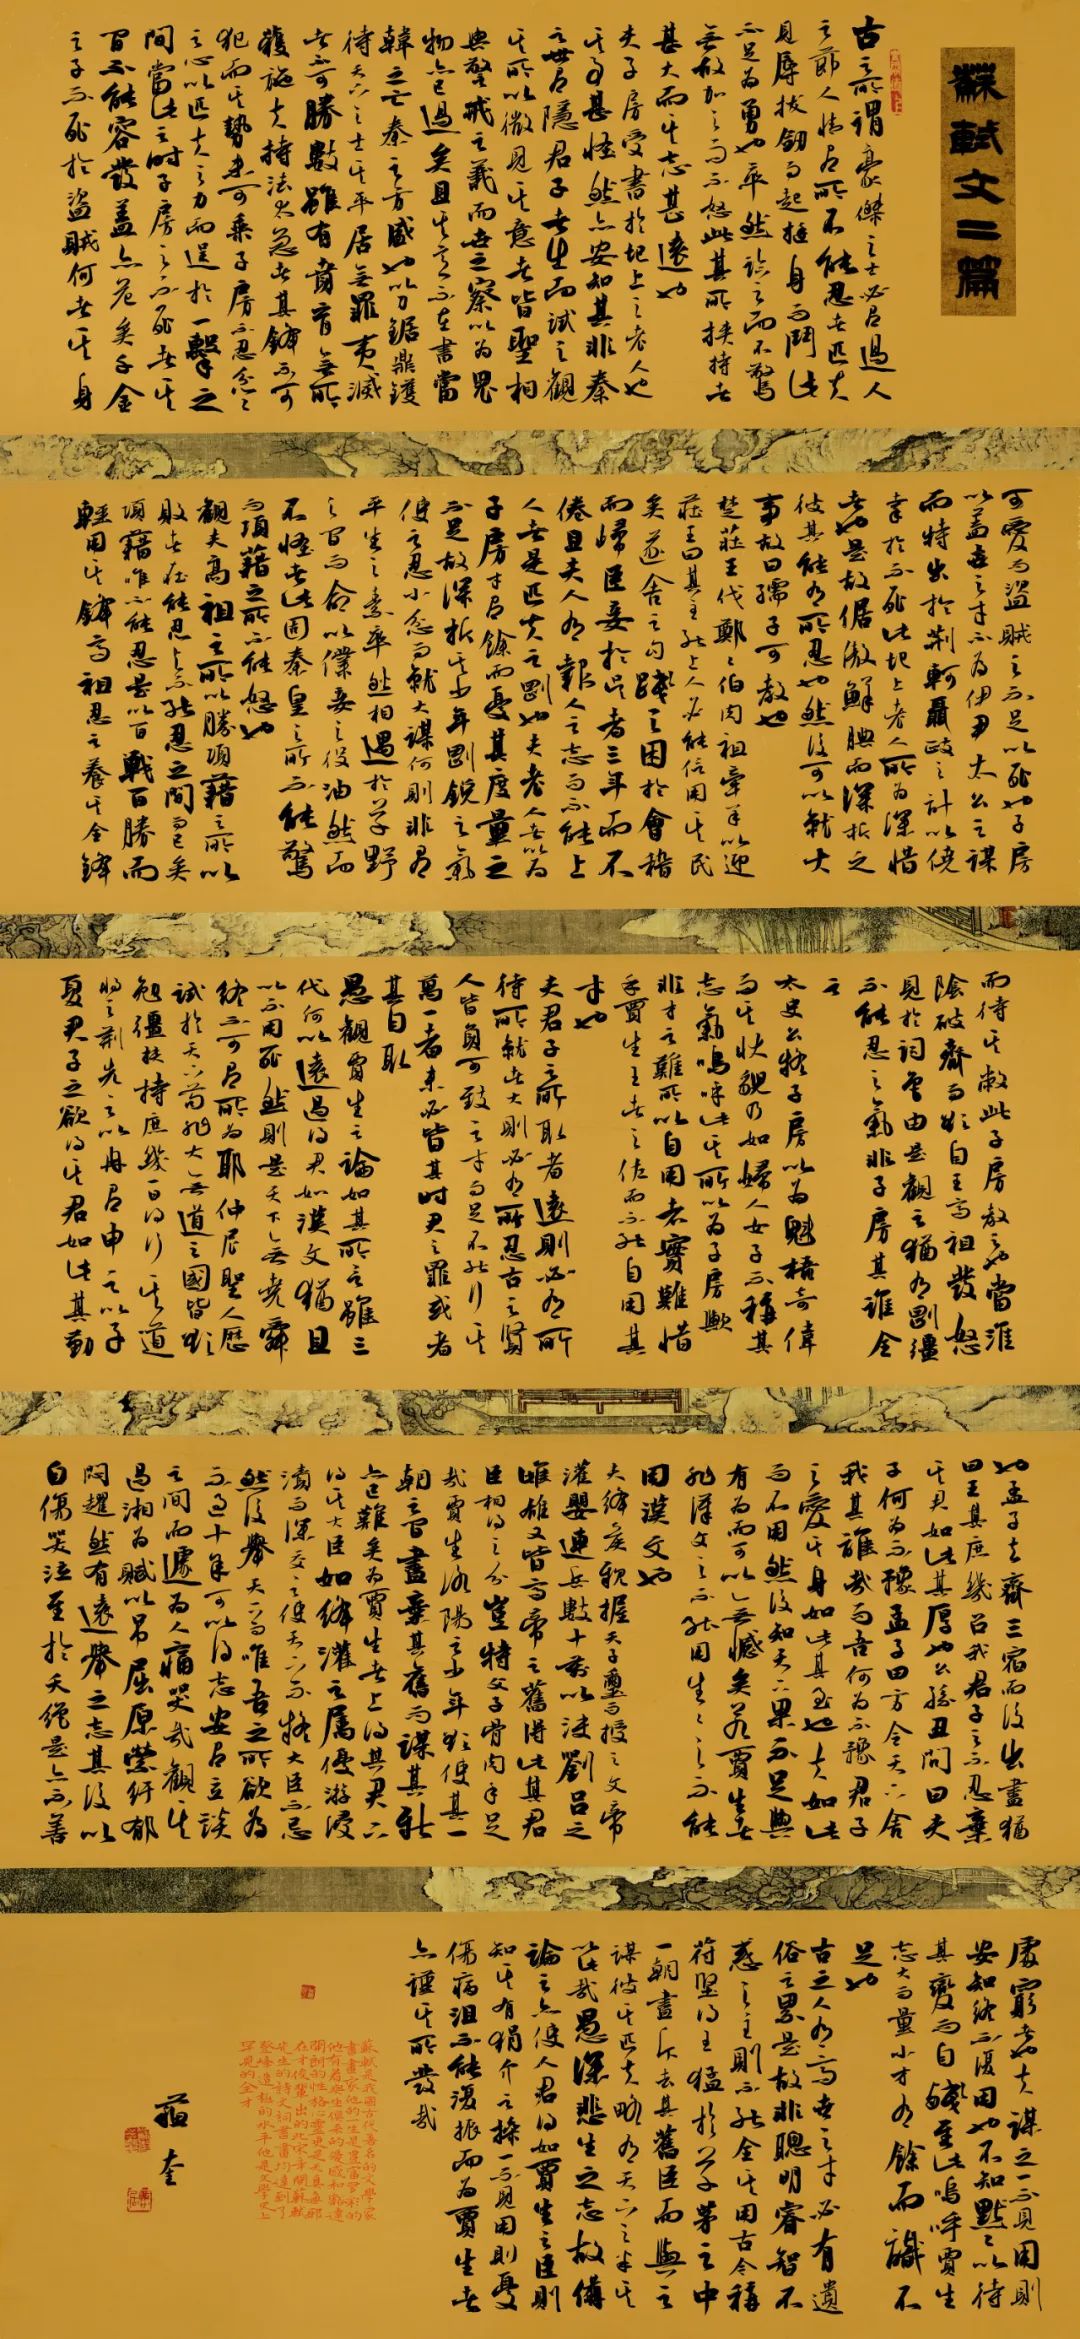 蘇軾文二篇
古之所謂豪傑之士必有過人
之節人情有所不能忍者匹夫
見辱拔劍而起挺身而鬥此
不足為勇也卒然臨之而不驚
無故加之而不怒此其所挾持者
甚大而其志甚遠也
夫子房受書於圯上之老人也
其事甚怪然亦安知其非秦
之世有隱君子者出而試之觀
其所以微見其意者皆聖相
與警戒之義而世之察以為鬼
物亦已過矣且其意不在書當
韓之亡秦之方盛也以刀鋸鼎鑊
待天下之士其平居無罪夷滅
者不可勝數雖有賁育無所
獲施夫持法太急者其鋒不可
犯而其勢未可乘子房不忍忿忿
之心以匹夫之力而逞於一擊之
間當此之時子房之不死者其
間不能容髮蓋亦危矣千金
之子不死於盜賊何者其身
可愛而盜賊之不足以死也子房
以蓋世之才不為伊尹太公之謀
而特出於荊軻聶政之計以僥
幸於不死此圯上老人所為深惜
者也是故倨傲鮮腆而深折之
彼其能有所忍也然後可以就大
事故曰孺子可教也
楚莊王伐鄭鄭伯肉袒牽羊以迎
莊王曰其主能下人必能信用其民
矣遂舍之勾踐之困於會稽
而歸臣妾於吳者三年而不
倦且夫有報人之志而不能下
人者是匹夫之剛也夫老人者以為
子房才有餘而憂其度量之
不足故深折其少年剛銳之氣
使之忍小忿而就大謀何則非有
平生之素卒然相遇於草野
之間而命以僕妾之役油然而
不怪者此固秦皇之所不能驚
而項籍之所不能怒也
觀夫高祖之所以勝項籍之所以
敗者在能忍與不能忍之間而已矣
項籍唯不能忍是以百戰百勝而
輕用其鋒高祖忍之養其全鋒
而待其敝此子房教之也當淮
陰破齊而欲自王高祖發怒
見於詞色由是觀之猶有剛彊
不能忍之氣非子房其誰全
之
太史公疑子房以為魁梧奇偉
而其狀貌乃如婦人女子不稱其
志氣嗚呼此其所以為子房歟
非才之難所以自用者實難惜
乎賈生王者之佐而不能自用其
才也
夫君子之所取者遠則必有所
待所就者大則必有所忍古之賢
人皆負可致之才而卒不能行其
萬一者未必皆其時君之罪或者
其自取
愚觀賈生之論如其所言雖三
代何以遠過得君如漢文猶且
以不用死然則是天下無堯舜
終不可有所為耶仲尼聖人歷
試於天下苟非大無道之國皆欲
勉彊扶持庶幾一日得行其道
將之荊先之以冉有申之以子
夏君子之欲得其君如此其勤
也孟子去齊三宿而後出晝猶
曰王其庶幾召我君子之不忍棄
其君如此其厚也公孫丑問曰夫
子何為不豫孟子曰方今天下舍
我其誰哉而吾何為不豫君子
之愛其身如此其至也夫如此
而不用然後知天下果不足與
有為而可以無憾矣若賈生者
非漢文之不能用生生之不能
用漢文也
夫絳侯親握天子璽而授之文帝
灌嬰連兵數十萬以決劉呂之
雌雄又皆高帝之舊將此其君
臣相得之分豈特父子骨肉手足
哉賈生洛陽之少年欲使其一
朝之間盡棄其舊而謀其新
亦已難矣為賈生者上得其君下
得其大臣如絳灌之屬優游浸
漬而深交之使天下不疑大臣不忌
然後舉天下而唯吾之所欲為
不過十年可以得志安有立談
之間而遽為人痛哭哉觀其
過湘為賦以吊屈原縈紆郁
悶趯然有遠舉之志其後以
自傷哭泣至於夭絕是亦不善
處窮者也夫謀之一不見用則
安知終不復用也不知默默以待
其變而自殘至此嗚呼賈生
志大而量小才有餘而識不
足也
古之人有高世之才必有遺
俗之累是故非聰明睿智不
惑之主則不能全其用古今稱
苻堅得王猛於草茅之中
一朝盡斥去其舊臣而與之
謀彼其匹夫略有天下之半其
以此哉愚深悲生之志故備
論之亦使人君得如賈生之臣則
知其有狷介之操一不見用則憂
傷病沮不能復振而為賈生者
亦謹其所發哉
蘇軾是我國古代著名的文學家
書畫家他的一生是豐富多彩的
他有着與生俱來的靈感和豁達
開朗的性格心靈更是天真無邪
在才俊輩出的北宋年間蘇軾
先生的詩文詞書畫均達到了
登峰造極的水平他是文學史上
罕見的全才
奎